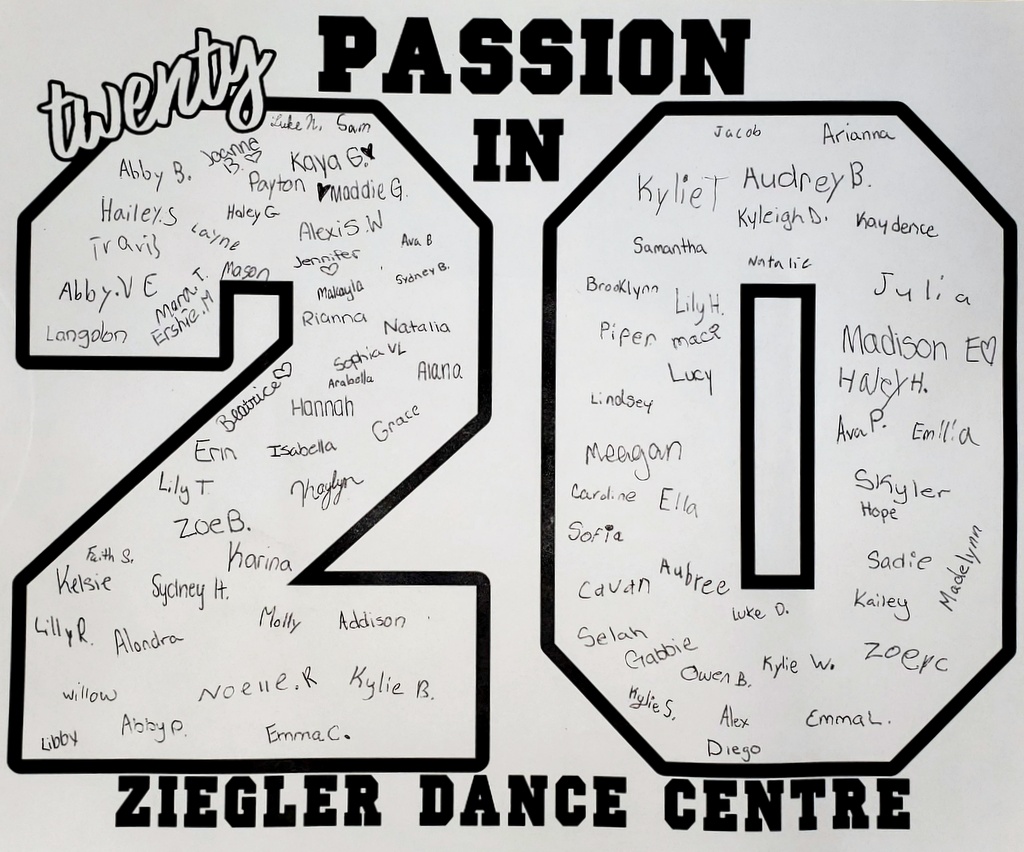 twenty PASSION
IN
Luke N. Sam
Abby B. Joanna B. Kaya G.
Payton Maddie G.
Hailey.S Haley G Alexis.W
Travis Layne Ava B
Jennifer
Abby.V E Mason Makayla Sydney B.
Mara T.
Ershie.M
Langdon Rianna Natalia
Sophia VL
Arabella Alana
Beatrice Hannah Grace
Erin Isabella
Lily T. Kaylyn
Zoe B.
Faith S. Karina
Kelsie Sydney H.
Lilly R. Alondra Molly Addison
willow Noelle.R Kylie B.
Libby Abby P. Emma C.
Jacob Arianna
Kylie T Audrey B.
Kyleigh D. Kaydence
Samantha
Natalie
Brooklynn Lily H. Julia
Piper Madison E
Lucy Haley H.
Lindsey Ava P. Emilia
Meagan
Caroline Ella Skyler
Hope
Sofia
Cavan Aubree Sadie Madelynn
Luke D. Kailey
Selah Gabbie
Owen B. Kylie W.
Kylie S. Alex Emma L.
Diego
ZIEGLER DANCE CENTRE